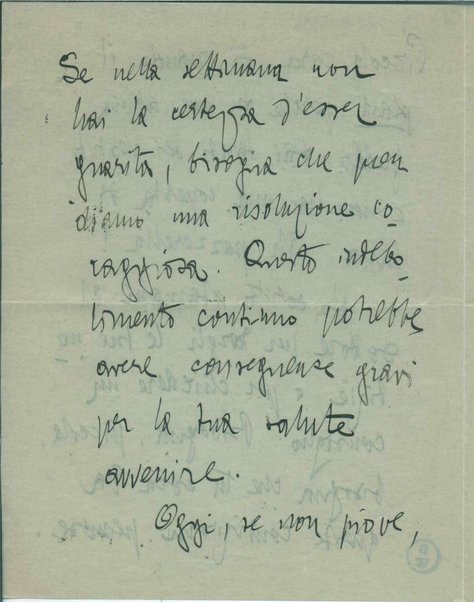 Se nella settimana non
hai la certezza d'esser
guarita, bisogna che pren
diamo una risoluzione co-
raggiosa. Questo indebo-
limento continuo potrebbe
avere conseguenze gravi
per la tua salute
avvenire.
Oggi, se non piove,